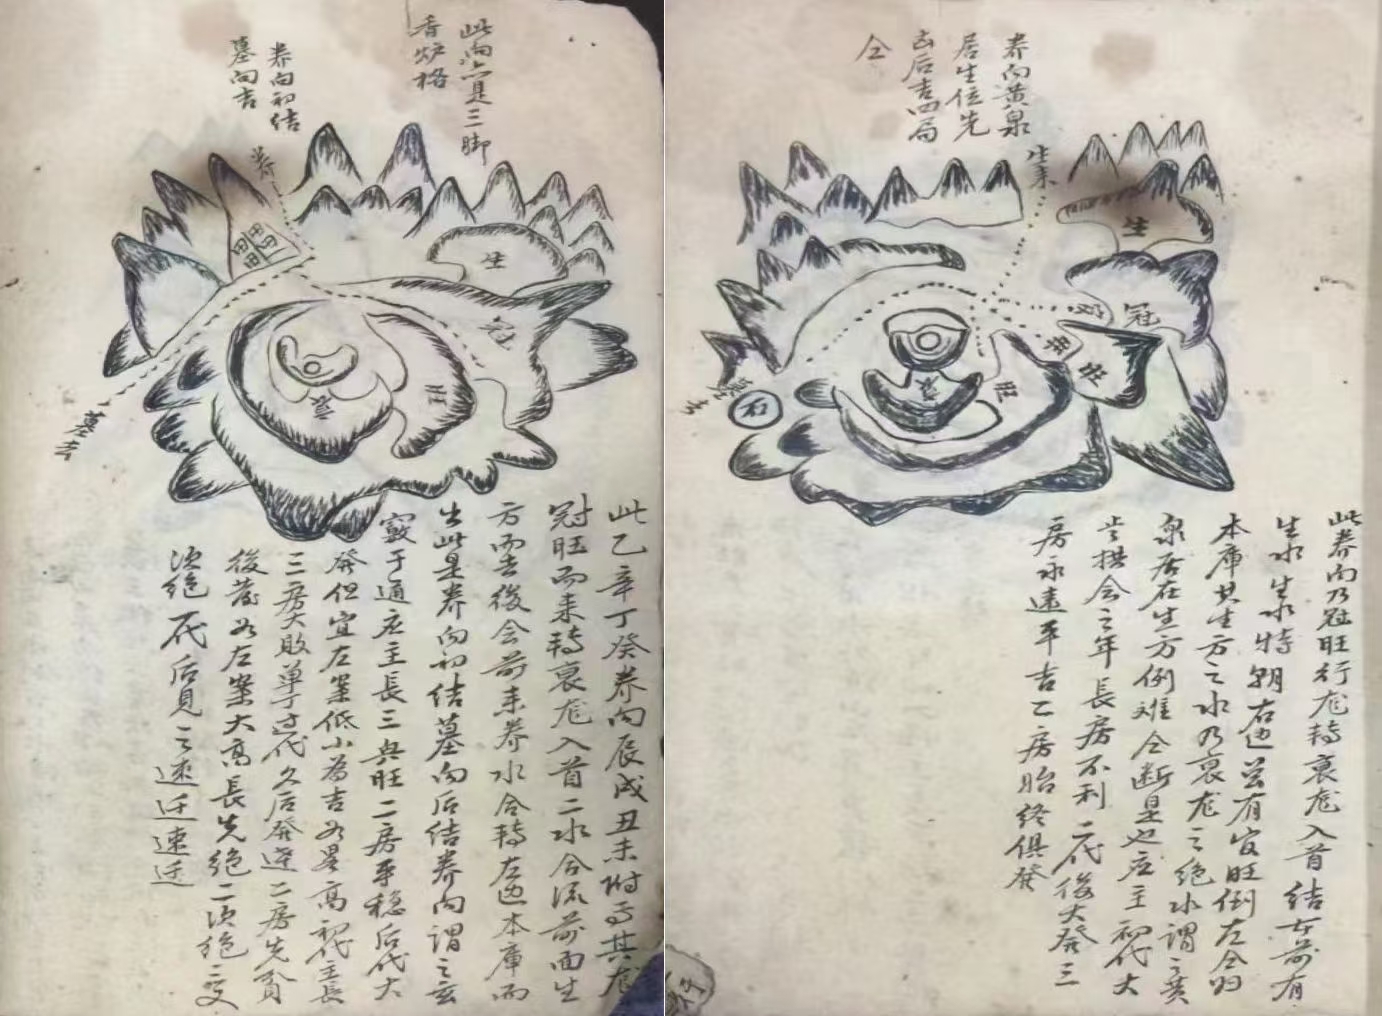 养向黄泉
居生位先
凶后吉四局
仝
生来
生
冠
旺
衰
墓
石
此养向乃冠旺行龙转衰龙入首结于前有
生水生水特朝右边并有官旺倒左仝归
本库其生方之水乃衰龙之绝水谓之黄
泉居在生方例难仝断是也应主初代大
步拱会之年長房不利二代後大發三
房永遠平吉二房貽终俱發
此向亦是三脚
香炉格
养向初结
墓向吉
养
生
冠
旺
衰
墓吉
此乙辛丁癸养向辰戌丑未附焉其龙
冠旺而来转衰龙入首二水合流前面生
方雲後会前来养水合转左边本庫而
出此是养向初结墓向后结养向謂之玄
竅于通应主長三与旺二房平稳后代大
發但宜左案低小為吉如星高初代主長
三房大敗單丁过代久后發达二房先貧
後發如左案大高長先绝二次绝三更
次绝一代后見之速迁速迁